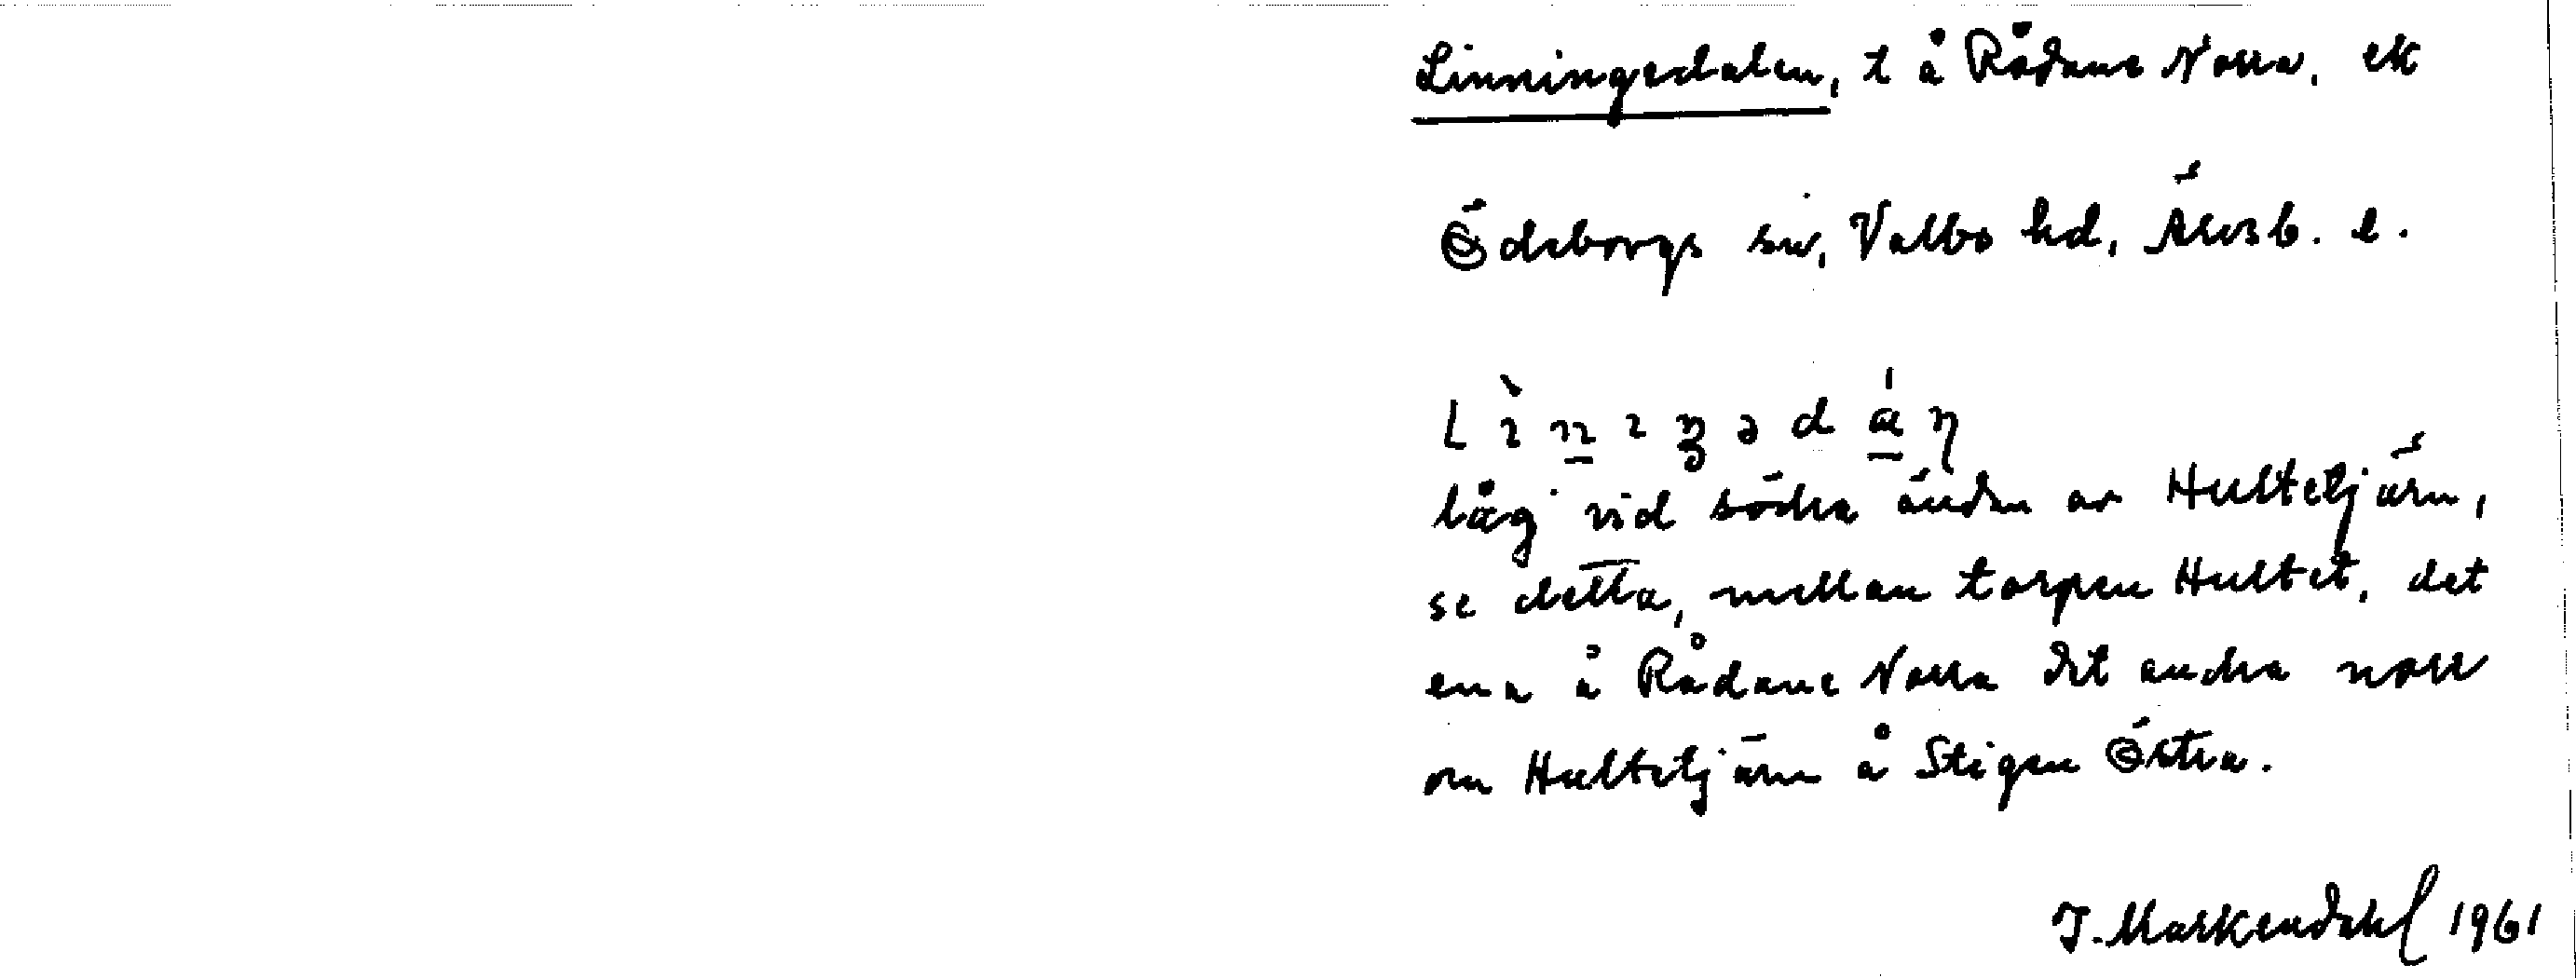 Linningedalen, t å Rådane Norra, ek
Ödeborgs sn, Valbo hd, Älvsb. l.
lág vid södra änden av Hultetjärn,
se detta, mellan torpen Hultet, det
ena å Rådane Norra det andra norr
om Hultetjärn å Stigen Östra.
J. Markendahl 1961